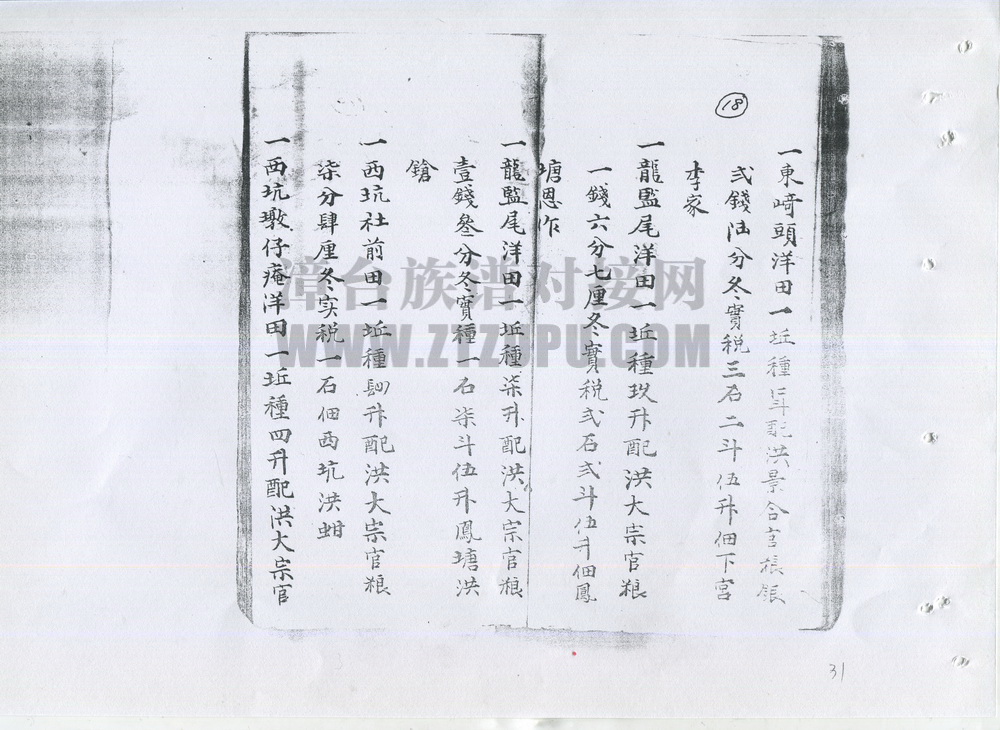 18
一東崎頭洋田一坵種配洪景合官粮銀
弍錢陆分冬實税三石二斗伍升佃下宮
李家
一龍監尾洋田一坵種玖升配洪大宗官粮
一錢六分七厘冬實税弍石弍斗伍升佃鳳
塘恩作
一龍監尾洋田一坵種柒升配洪大宗官粮
壹錢叁分冬實種一石柒斗伍升鳳塘洪
鎗
一西坑社前田一坵種四升配洪大宗官粮
柒分肆厘冬实税一石佃西坑洪蚶
一西坑墩仔庵洋田一坵種四升配洪大宗官
漳台族谱对接网
WWW.ZTZUPU.COM
31